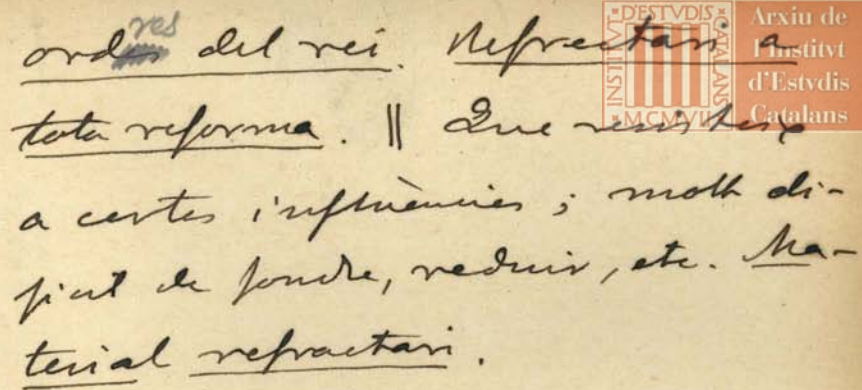 ordres del rei. Refractari a
tota reforma. || Que resisteix
a certes influències; molt di-
fícil de fondre, reduir, etc. Ma-
terial refractari.
INSTITVT D'ESTVDIS CATALANS
MCMVII
Arxiu de
l'Institvt
d'Estvdis
Catalans